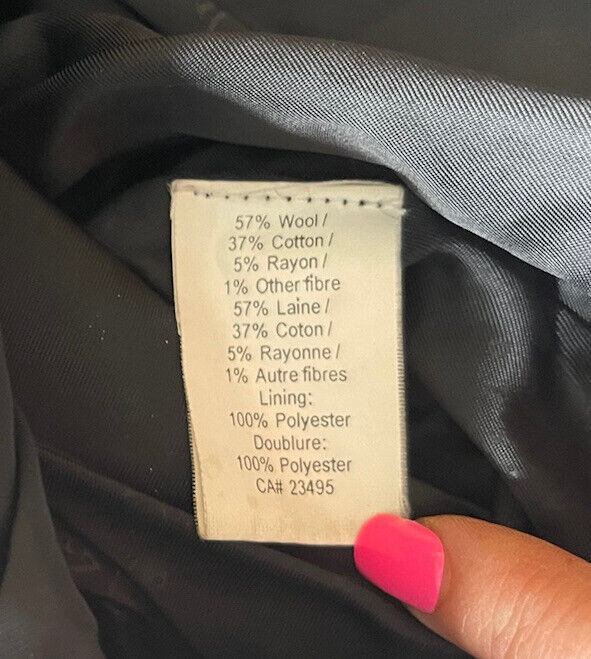 57% Wool /
37% Cotton /
5% Rayon /
1% Other fibre
57% Laine /
37% Coton /
5% Rayonne /
1% Autre fibres
Lining:
100% Polyester
Doublure:
100% Polyester
CA# 23495